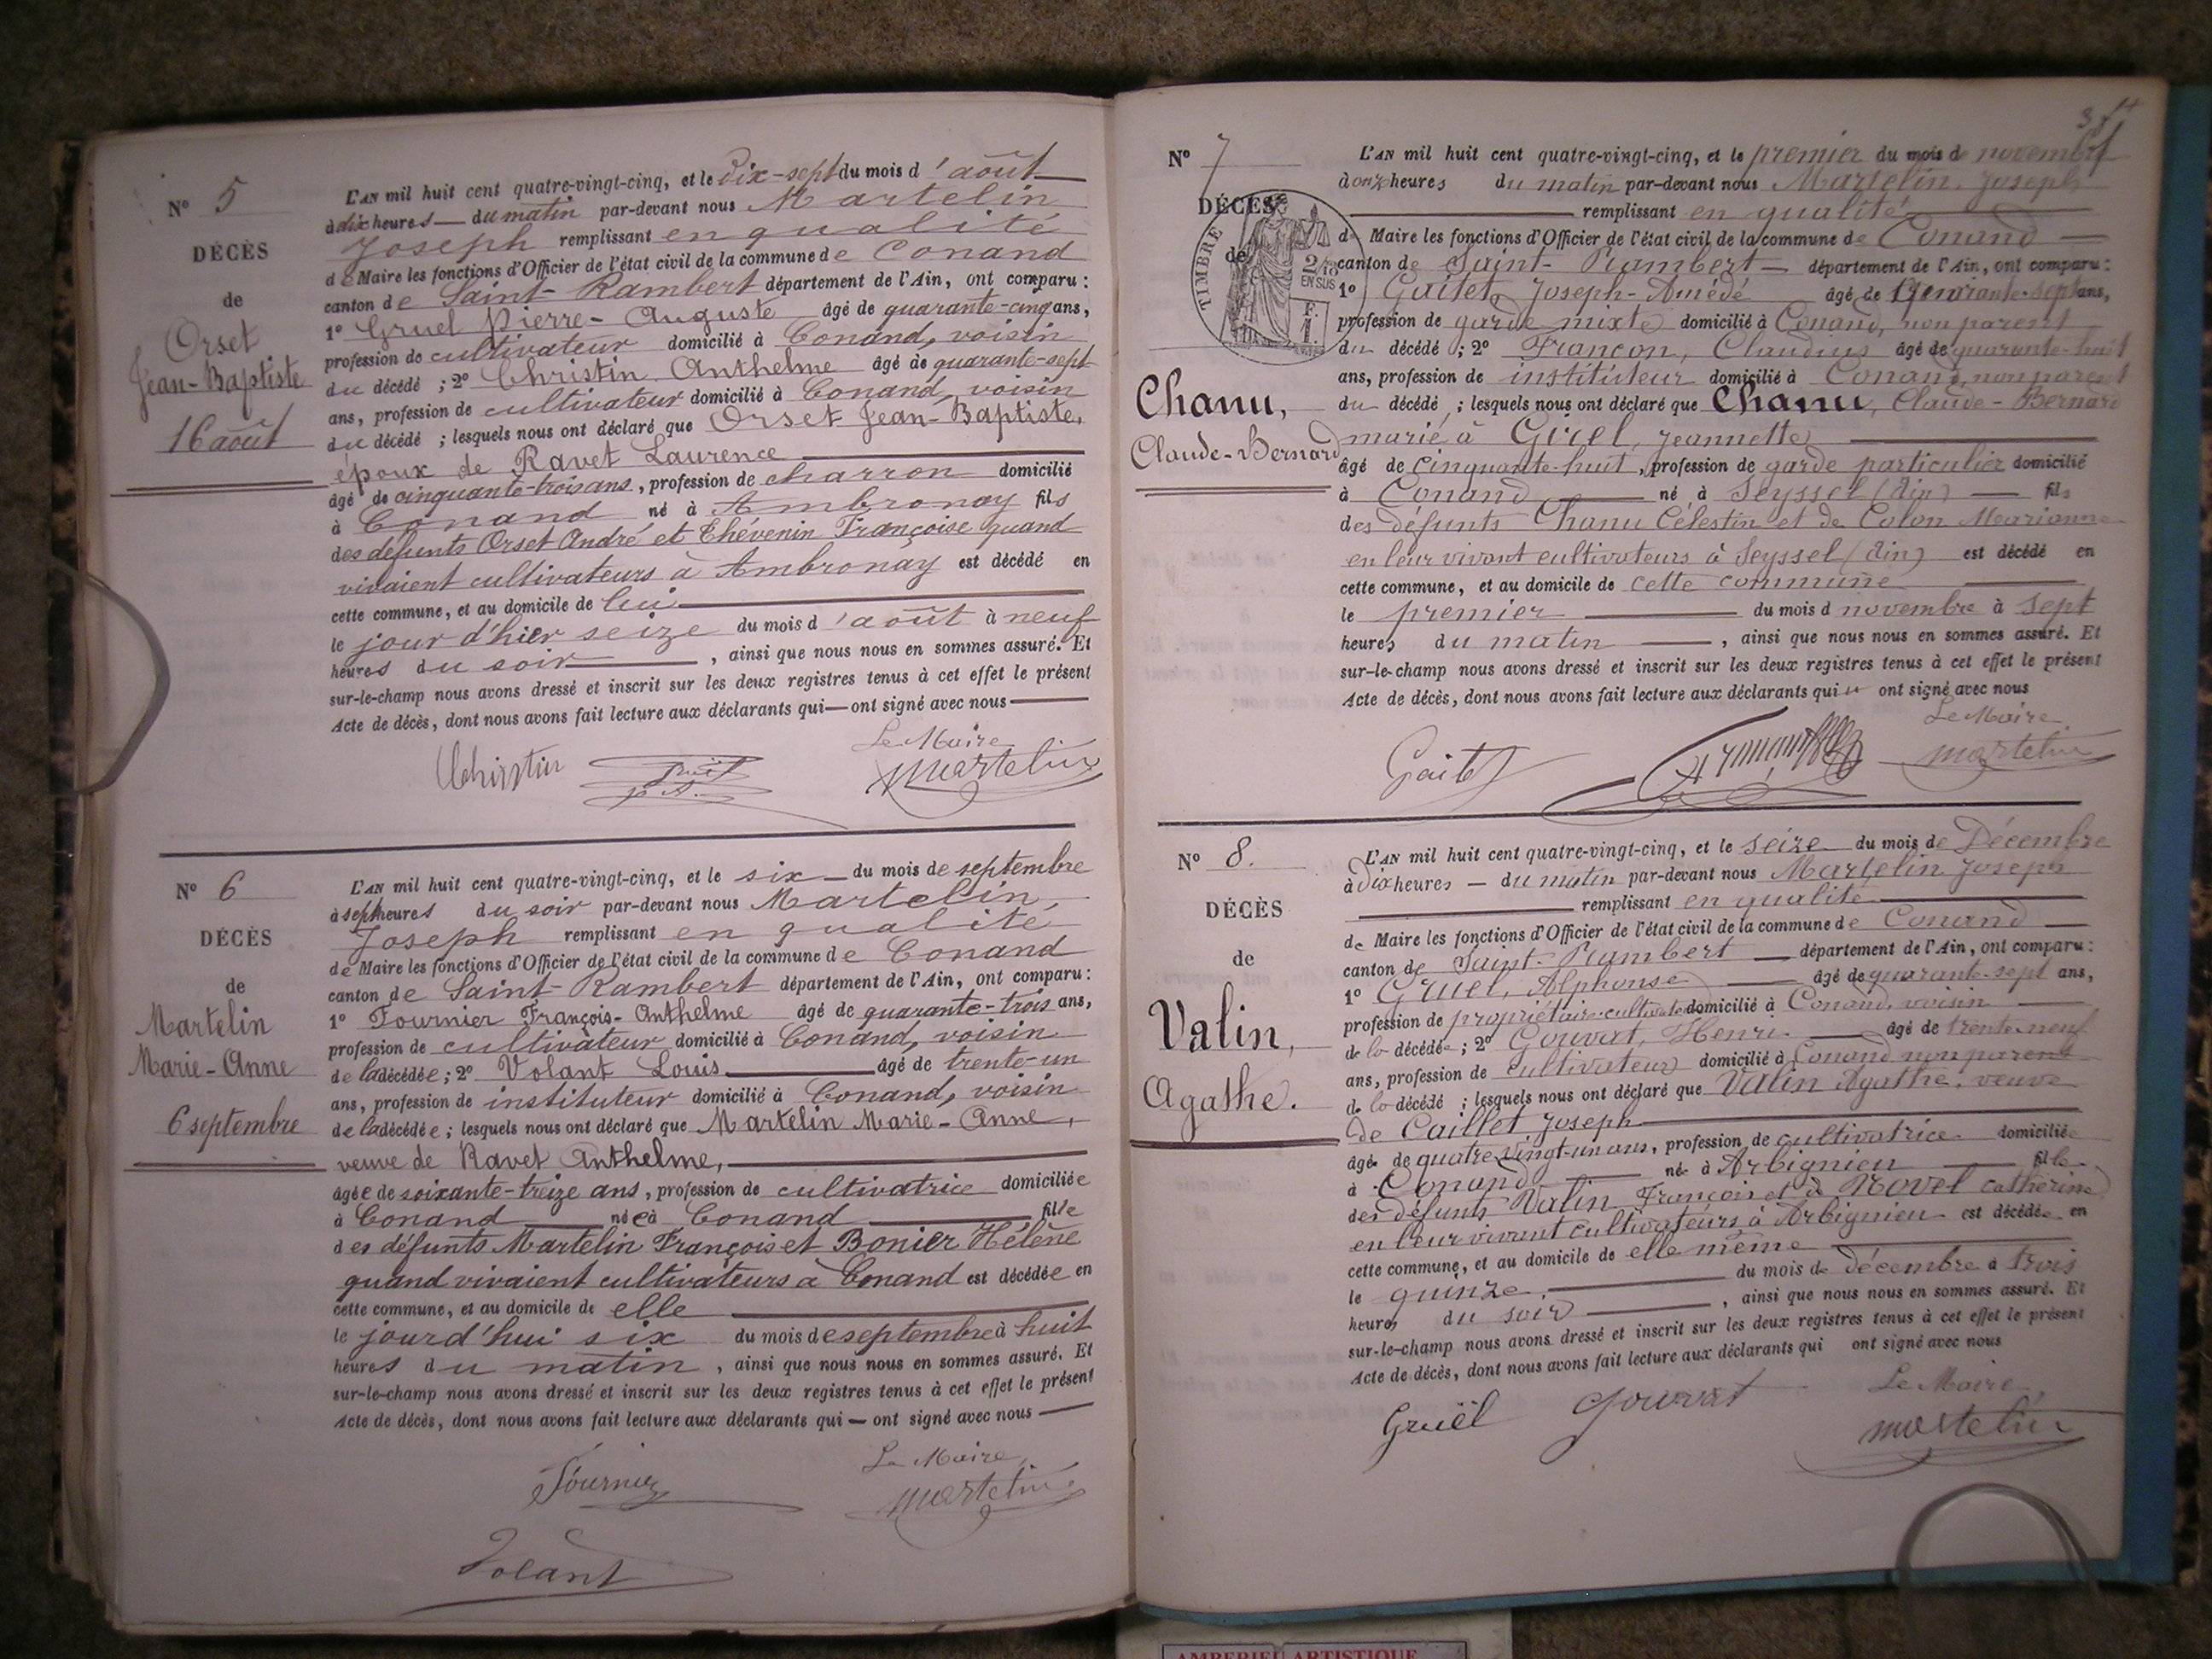 N° 5
DÉCÈS
de
Orset
Jean-Baptiste
16 août
L'AN mil huit cent quatre-vingt-cinq, et le Dix-sept du mois d'août
à dix heures du matin par-devant nous Martelin
Joseph remplissant en qualité
de Maire les fonctions d'Officier de l'état civil de la commune de Conand
canton de Saint-Rambert département de l'Ain, ont comparu :
1° Gruel Pierre-Auguste âgé de quarante-cinq ans,
profession de cultivateur domicilié à Conand, voisin
du décédé ; 2° Christin Anthelme âgé de quarante-sept
ans, profession de cultivateur domicilié à Conand, voisin
du décédé ; lesquels nous ont déclaré que Orset Jean-Baptiste,
époux de Ravet Laurence
âgé de cinquante-trois ans, profession de charron domicilié
à Conand né à Ambronay fils
des défunts Orset André et Thévenin Françoise quand
vivaient cultivateurs à Ambronay est décédé en
cette commune, et au domicile de lui
le jour d'hier seize du mois d'août à neuf
heures du soir, ainsi que nous nous en sommes assuré. Et
sur-le-champ nous avons dressé et inscrit sur les deux registres tenus à cet effet le présent
Acte de décès, dont nous avons fait lecture aux déclarants qui — ont signé avec nous
Le Maire
Christin Martelin
N° 6
DÉCÈS
de
Martelin
Marie-Anne
6 septembre
L'AN mil huit cent quatre-vingt-cinq, et le six du mois de septembre
à sept heures du soir par-devant nous Martelin,
Joseph remplissant en qualité
de Maire les fonctions d'Officier de l'état civil de la commune de Conand
canton de Saint-Rambert département de l'Ain, ont comparu :
1° Fournier François-Anthelme âgé de quarante-trois ans,
profession de cultivateur domicilié à Conand, voisin
de la décédée ; 2° Volant Louis âgé de trente-un
ans, profession de instituteur domicilié à Conand, voisin
de la décédée ; lesquels nous ont déclaré que Martelin Marie-Anne,
veuve de Ravet Anthelme,
âgée de soixante-treize ans, profession de cultivatrice domiciliée
à Conand née à Conand fille
des défunts Martelin François et Bonier Hélène
quand vivaient cultivateurs à Conand est décédée en
cette commune, et au domicile de elle
le jourd'hui six du mois de septembre à huit
heures du matin, ainsi que nous nous en sommes assuré. Et
sur-le-champ nous avons dressé et inscrit sur les deux registres tenus à cet effet le présent
Acte de décès, dont nous avons fait lecture aux déclarants qui — ont signé avec nous
Le Maire
Fournier Martelin
Volant
N° 7
DÉCÈS
de
TIMBRE
2/10
EN SUS
F.
1
Chanu,
Claude-Bernard
L'AN mil huit cent quatre-vingt-cinq, et le premier du mois de novembre
à onze heures du matin par-devant nous Martelin, Joseph
remplissant en qualité
de Maire les fonctions d'Officier de l'état civil de la commune de Conand
canton de Saint-Rambert département de l'Ain, ont comparu :
1° Gaitet, Joseph-Amédé âgé de ans,
profession de garde mixte domicilié à Conand, non parent
du décédé ; 2° Françon, Claudius âgé de quarante-huit
ans, profession de instituteur domicilié à Conand, non parent
du décédé ; lesquels nous ont déclaré que Chanu, Claude-Bernard
marié à Girel, Jeannette
âgé de cinquante-huit, profession de garde particulier domicilié
à Conand né à Seyssel (Ain) fils
des défunts Chanu Célestin et de Colon Marianne
en leur vivant cultivateurs à Seyssel (Ain) est décédé en
cette commune, et au domicile de cette commune
le premier du mois d novembre à sept
heures du matin, ainsi que nous nous en sommes assuré. Et
sur-le-champ nous avons dressé et inscrit sur les deux registres tenus à cet effet le présent
Acte de décès, dont nous avons fait lecture aux déclarants qui ont signé avec nous
Le Maire
Gaitet Martelin
N° 8.
DÉCÈS
de
Valin,
Agathe.
L'AN mil huit cent quatre-vingt-cinq, et le seize du mois de Décembre
à Dix heures — du matin par-devant nous Martelin Joseph
remplissant en qualité
de Maire les fonctions d'Officier de l'état civil de la commune de Conand
canton de Saint-Rambert département de l'Ain, ont comparu :
1° Gruel, Alphonse âgé de quarante-sept ans,
profession de propriétaire-cultivateur domicilié à Conand, voisin
de la décédée ; 2° Gouvat, Henri âgé de trente-neuf
ans, profession de cultivateur domicilié à Conand non parent
de la décédé ; lesquels nous ont déclaré que Valin Agathe, veuve
de Caillet Joseph
âgé de quatre vingt-un ans, profession de cultivatrice domiciliée
à Conand né à Arbignieu fille
des défunts Valin François et de Novel Catherine
en leur vivant cultivateurs à Arbignieu est décédée en
cette commune, et au domicile de elle même
le quinze, du mois de décembre à trois
heures du soir, ainsi que nous nous en sommes assuré. Et
sur-le-champ nous avons dressé et inscrit sur les deux registres tenus à cet effet le présent
Acte de décès, dont nous avons fait lecture aux déclarants qui ont signé avec nous
Le Maire
Gruël Gouvat Martelin
AMBERIEU ARTISTIQUE